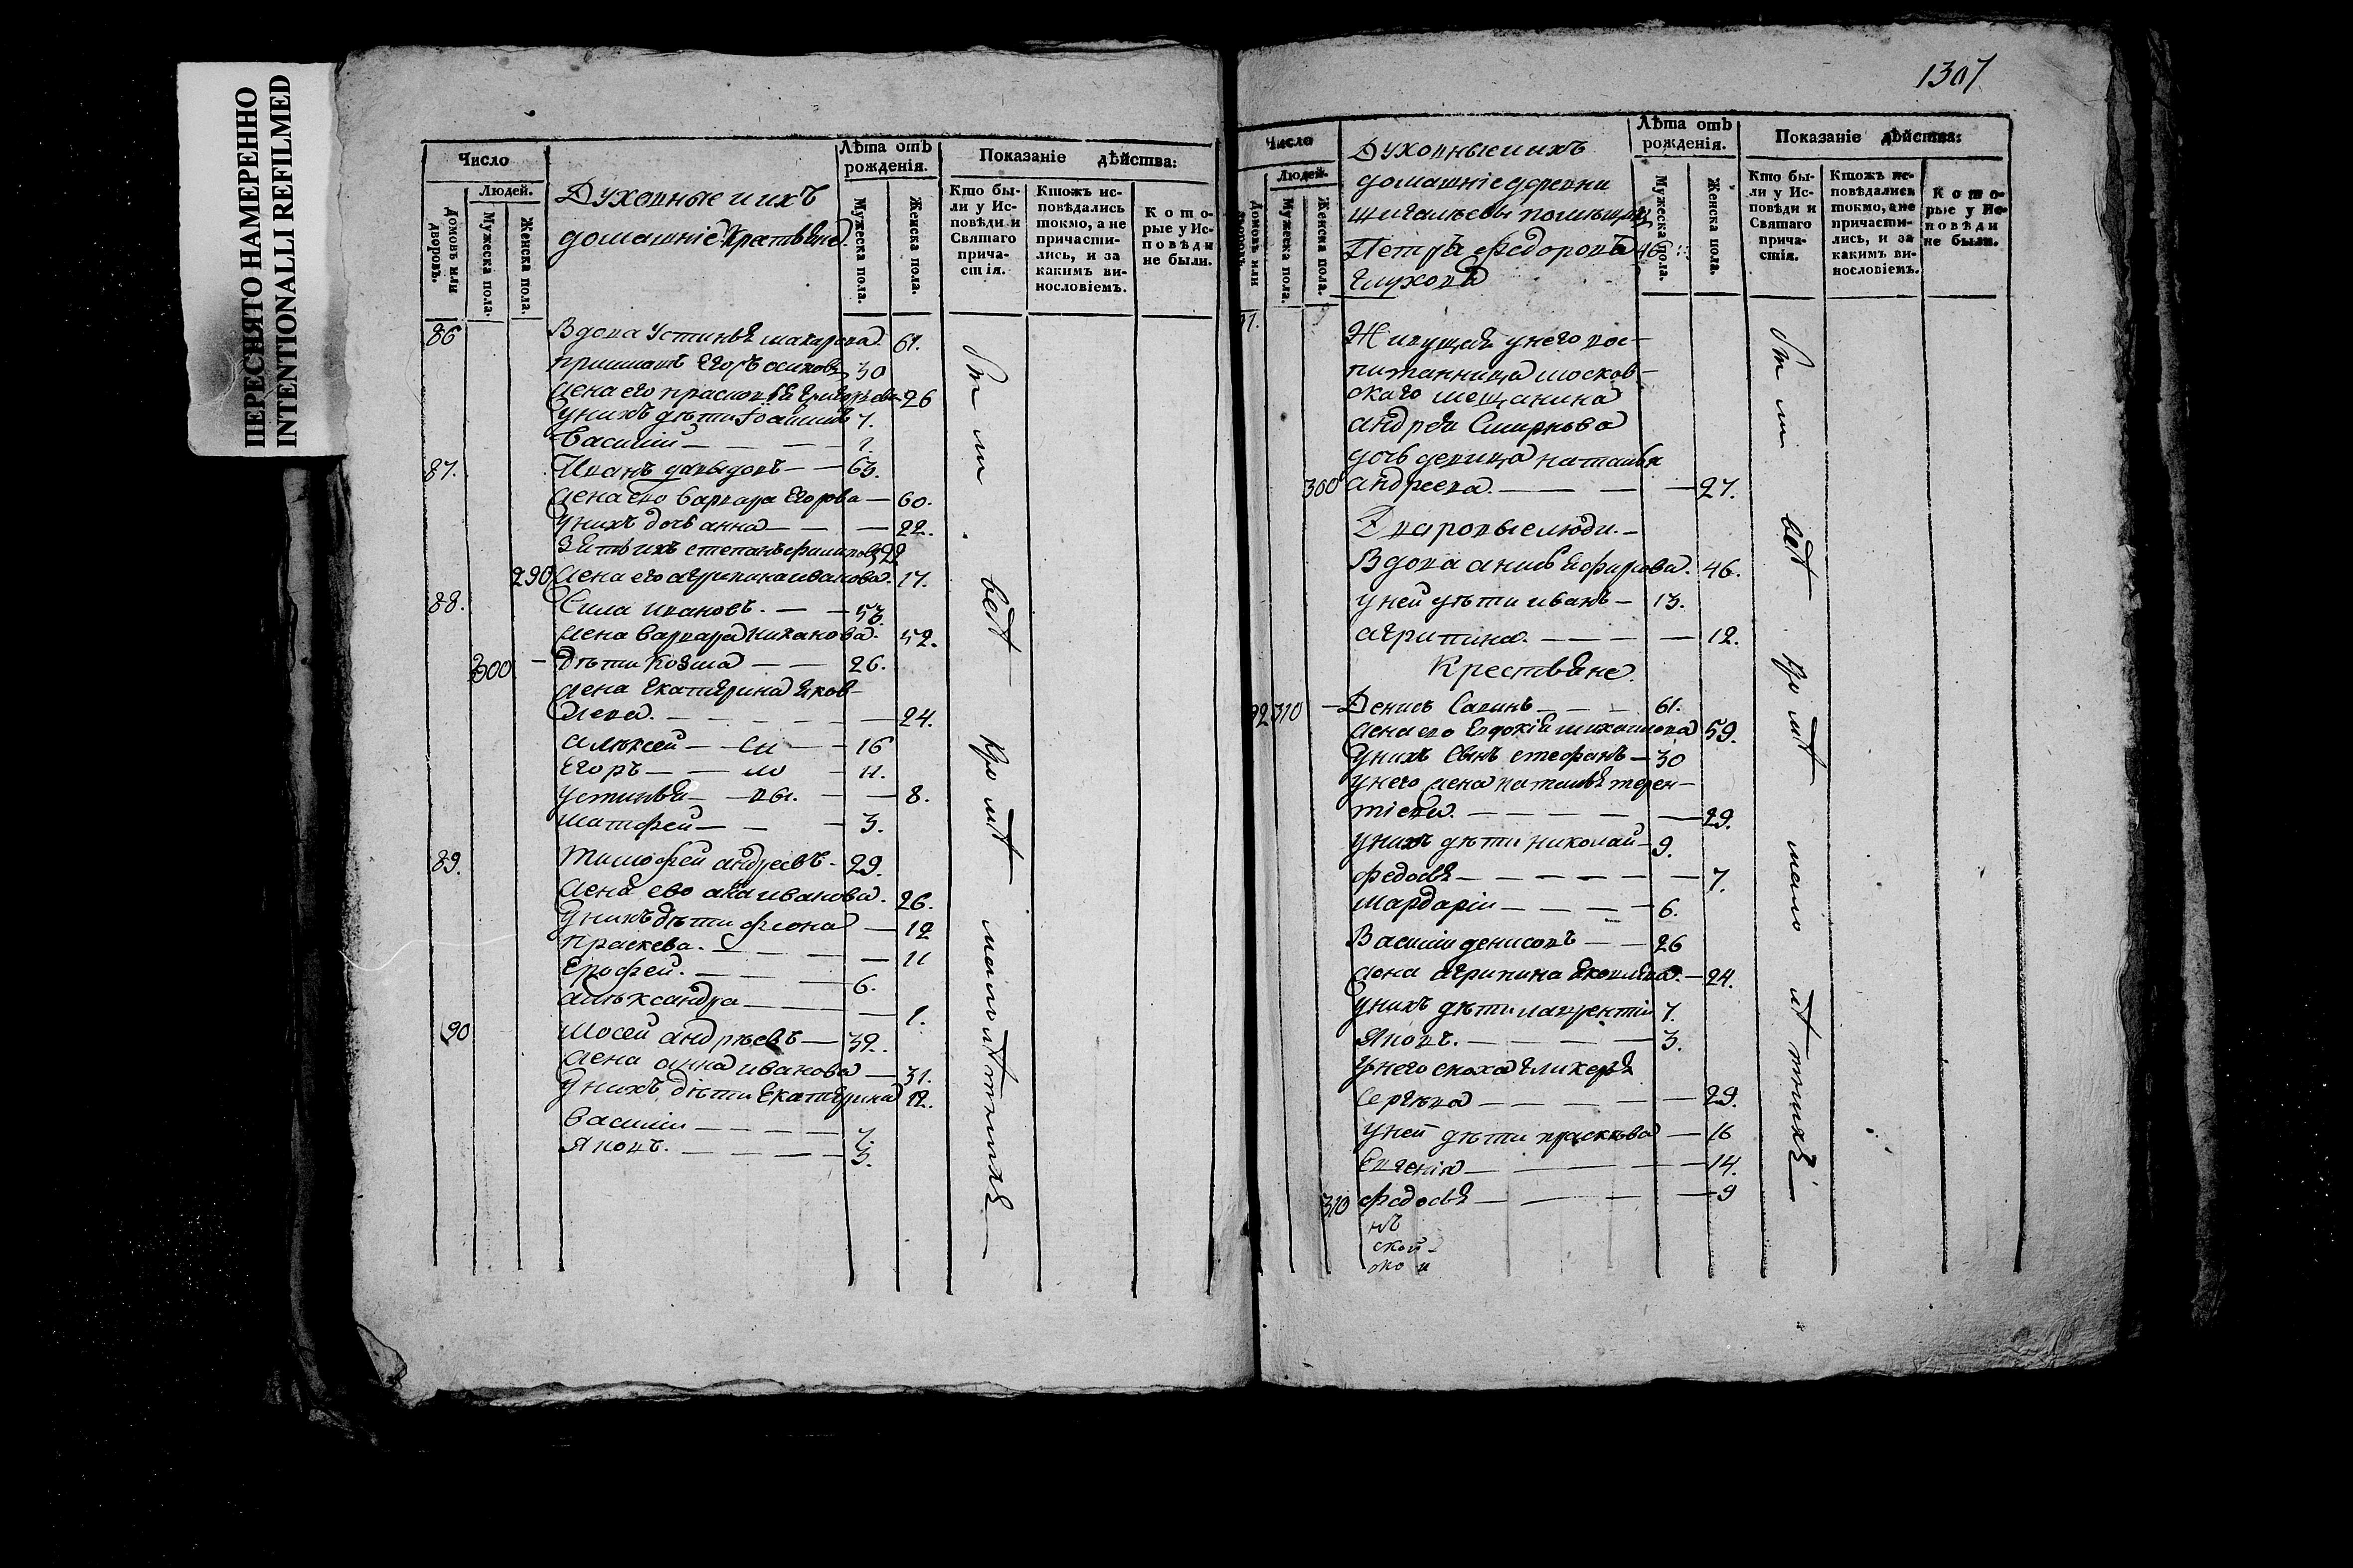 ПЕРЕСНЯТО НАМЕРЕННО
INTENTIONALLI REFILMED
Число
Людей.
Домовъ или дворовъ.
Мужеска пола.
Женска пола.
Духовные и ихъ
домашніе Крстьяне.
Лѣта отъ рожденія.
Мужеска пола.
Женска пола.
Показаніе дѣйства:
Кто бы-
ли у Ис-
повѣди и
Святаго
прича-
стія.
Ктожъ ис-
повѣдались
токмо, а не
причасти-
лись, и за
какимъ ви-
нословіемъ.
К о т о-
рые у Ис-
п о в ѣ д и
не были.
86 Вдова Устинья макарова. 61.
Егоръ осиповъ 30
жена его прасковья григорьева 26
у нихъ дѣти 7.
Василій — — —
87. Иванъ давыдовъ — — 63.
жена его варвара Егорова — 60.
у нихъ дочь анна — — — 22.
зять ихъ степанъ филиповъ 22
290 жена его агрипина иванова. 17.
88. Сила ивановъ. — — 53.
жена варвара 52.
300 — дѣти Козма — — 26.
жена Екатерина яков-
лева. — — — — — — 24.
алѣксей — — — 16
Егоръ — — — 11.
устинья — — — — 8.
матфей — — — 3.
89. тимофей андреевъ — 29.
жена ево иванова. 26.
у нихъ дѣти феона — 12
праскева. — — — — 11
Ерофей. — — — 6.
алѣксандра — — — 1.
90 мосей андрѣевъ — 32.
жена анна иванова — 31.
у нихъ дѣти Екатерина 12.
василій — — — — 7.
Яковъ. — — — — 3.
1307
Число
Людей.
Домовъ или дворовъ.
Мужеска пола.
Женска пола.
Духовные и ихъ
домашніе деревни
помѣщикъ
Петръ федоровъ 46
глуховъ
Лѣта отъ рожденія.
Мужеска пола.
Женска пола.
Показаніе дѣйства:
Кто бы-
ли у Ис-
повѣди и
Святаго
прича-
стія.
Ктожъ ис-
повѣдались
токмо, а не
причасти-
лись, и за
какимъ ви-
нословіемъ.
К о т о-
рые у Ис-
п о в ѣ д и
не были.
91. Живущая у него вос-
питанница москов-
скаго мещанина
андрея Смирнова
дочь девица наталья
300 андреева. — — — — 27.
Дваровые люди. —
Вдова анисья фирсова. 46.
у ней дѣти иванъ — 13.
агрипина. — — — — 12.
Крестьяне.
92 310 — Денисъ Савинъ — — — 61.
жена ево Евдокія михаилова 59.
у нихъ сынъ стефанъ — 30
у него жена наталья терен-
тіева. — — — — — — 29.
у нихъ дѣти николай — 9.
федосья — — — — — — 7.
мардарій — — — — 6.
Василій денисовъ — — 26
жена агрипина яковлева. — 24.
у нихъ дѣти лаврентій 7.
Яковъ. — — — — 3.
у него сноха гликерья
Сергѣева — — — — — 29.
у ней дѣти прасквва — 16
Евгенія — — — — — 14.
310 федосья — — — — 9